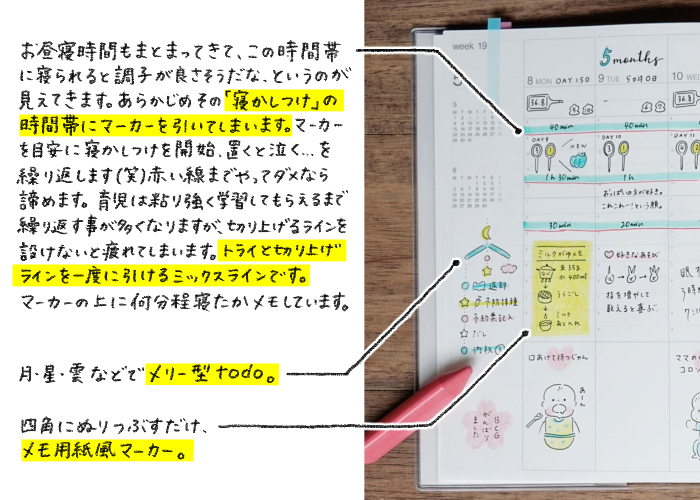 お昼寝時間もまとまってきて、この時間帯
に寝られると調子が良さそうだな、というのが
見えてきます。あらかじめその「寝かしつけ」の
時間帯にマーカーを引いてしまいます。マーカー
を目安に寝かしつけを開始、置くと泣く…を
繰り返します(笑)赤い線までやってダメなら
諦めます。育児は粘り強く学習してもらえるまで
繰り返す事が多くなりますが、切り上げるラインを
設けないと疲れてしまいます。トライと切り上げ
ラインを一度に引けるミックスラインです。
マーカーの上に何分程寝たかメモしています。
月・星・雲などでメリー型todo。
四角にぬりつぶすだけ、
メモ用紙風マーカー。
week 19
5
5 months
8 MON DAY 150
9 TUE 5ヵ月0日
10 WED
36.8
40 min
40 min
DAY 9
DAY 10
NEW
1h 30min
1h
おっぱいの方が好き。
これこれー!という顔。
30 min
20 min
ミルクがゆメモ
米 35g
水 400ml
うらごし
ミルク
あと入れ
好きなあそび
指を増やして
数えると喜ぶ
予防接種
予約票記入
だし
口あけて待つじゃん
あーん
BCG
がんばり
ました